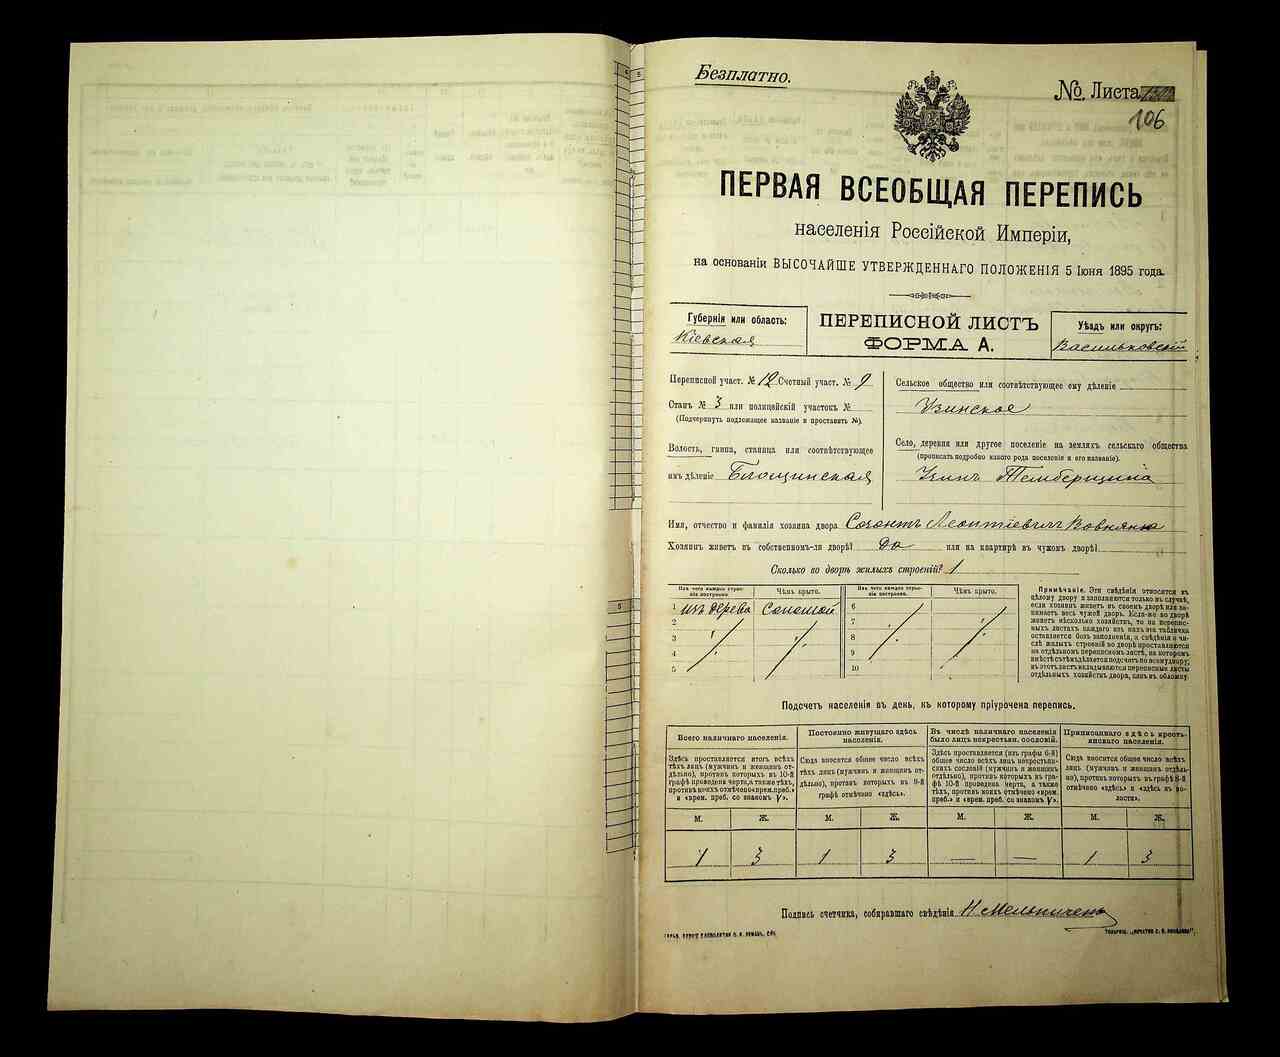 Безплатно.
№. Листа
106
ПЕРВАЯ ВСЕОБЩАЯ ПЕРЕПИСЬ
населенія Россійской Имперіи,
на основаніи ВЫСОЧАЙШЕ УТВЕРЖДЕННАГО ПОЛОЖЕНІЯ 5 Іюня 1895 года.
Губернія или область:
Кіевская
ПЕРЕПИСНОЙ ЛИСТЪ
ФОРМА А.
Уѣздъ или округъ:
Васильковскій
Переписной участ. № 12 Счетный участ. № 9
Станъ № 3 или полицейскій участокъ №
(Подчеркнуть подлежащее названіе и проставить №).
Волость, гмина, станица или соотвѣтствующее
имъ дѣленіе
Сельское общество или соотвѣтствующее ему дѣленіе
Узинское
Село, деревня или другое поселеніе на земляхъ сельскаго общества
(прописать подробно какого рода поселеніе и его названіе).
Узинъ Темберщина
Имя, отчество и фамилія хозяина двора Созонтъ Леонтіевичъ
Хозяинъ живетъ въ собственномъ-ли дворѣ? да или на квартирѣ въ чужомъ дворѣ?
Сколько во дворѣ жилыхъ строеній? 1
Изъ чего каждое строе-
ніе построено.
Чѣмъ крыто.
Изъ чего каждое строе-
ніе построено.
Чѣмъ крыто.
1 изъ дерева Соломой 6
2 7
3 8
4 9
5 10
Примѣчаніе. Эти свѣдѣнія относятся къ
цѣлому двору и заполняются только въ случаѣ,
если хозяинъ живетъ въ своемъ дворѣ или за-
нимаетъ весь чужой дворъ. Если-же во дворѣ
живетъ нѣсколько хозяйствъ, то на перепис-
ныхъ листахъ каждаго изъ нихъ эта табличка
оставляется безъ заполненія, а свѣдѣнія о чи-
слѣ жилыхъ строеній во дворѣ проставляются
на отдѣльномъ переписномъ листѣ, на которомъ
вмѣстѣ съ тѣмъ дѣлается подсчетъ по всему двору;
въ этотъ листъ вкладываются переписные листы
отдѣльныхъ хозяйствъ двора, какъ въ обложку.
Подсчетъ населенія въ день, къ которому пріурочена перепись.
Всего наличнаго населенія.
Здѣсь проставляется итогъ всѣхъ
тѣхъ лицъ (мужчинъ и женщинъ от-
дѣльно), противъ которыхъ въ 10-й
графѣ проведена черта, а также тѣхъ,
противъ коихъ отмѣчено «врем. преб.»
и «врем. преб. со знакомъ V».
Постоянно живущаго здѣсь
населенія.
Сюда вносится общее число всѣхъ
тѣхъ лицъ (мужчинъ и женщинъ от-
дѣльно), противъ которыхъ въ 9-й
графѣ отмѣчено «здѣсь».
Въ числѣ наличнаго населенія
было лицъ некрестьян. сословій.
Здѣсь проставляется (изъ графы 6-й)
общее число всѣхъ лицъ некрестьян-
скихъ сословій (мужчинъ и женщинъ
отдѣльно), противъ которыхъ въ гра-
фѣ 10-й проведена черта, а также
тѣхъ, противъ коихъ отмѣчено «врем.
преб.» и «врем. преб. со знакомъ V».
Приписаннаго здѣсь кресть-
янскаго населенія.
Сюда вносится общее число всѣхъ
лицъ (мужчинъ и женщинъ отдѣль-
но), противъ которыхъ въ графѣ 8-й
отмѣчено «здѣсь» и «здѣсь въ во-
лости».
М. Ж. М. Ж. М. Ж. М. Ж.
1 3 1 3 — — 1 3
Подпись счетчика, собиравшаго свѣдѣнія Н Мельниченъ